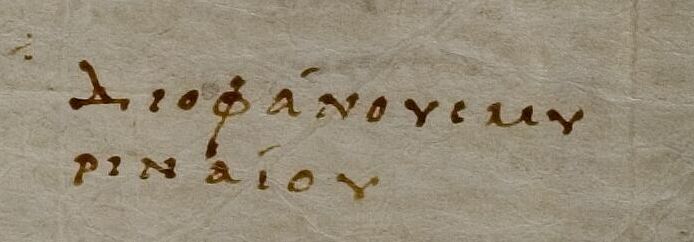 Διοφάνους μυ
ριναίου